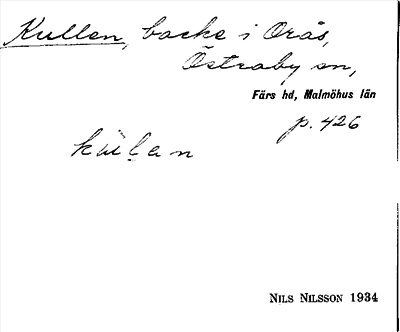 Kullen, backe i Orås,
Östraby sn,
Färs hd, Malmöhus län
p. 426
küḷan
NILS NILSSON 1934